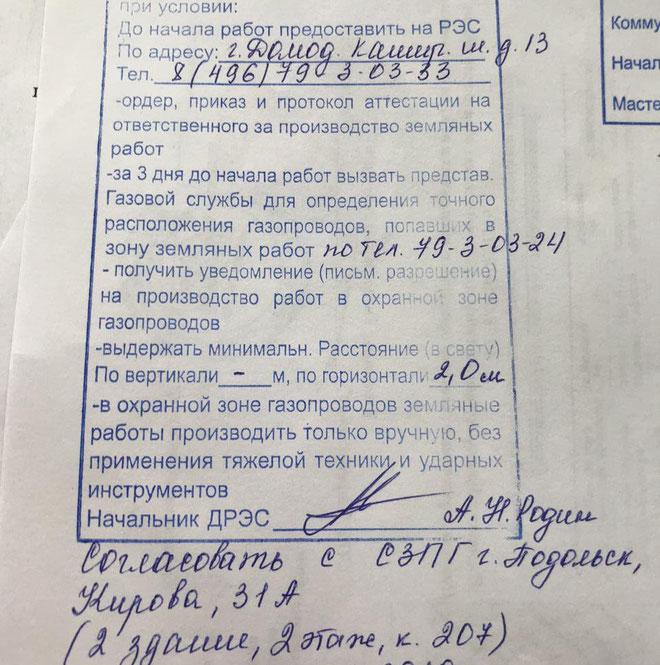 при условии:
До начала работ предоставить на РЭС
По адресу: г. Домод. Кашир. ш. д. 13
Тел. 8(496)79 3-03-33
-ордер, приказ и протокол аттестации на
ответственного за производство земляных
работ
-за 3 дня до начала работ вызвать представ.
Газовой службы для определения точного
расположения газопроводов, попавших в
зону земляных работ по тел. 79-3-03-24
- получить уведомление (письм. разрешение)
на производство работ в охранной зоне
газопроводов
-выдержать минимальн. Расстояние (в свету)
По вертикали - м, по горизонтали 2,0 м
-в охранной зоне газопроводов земляные
работы производить только вручную, без
применения тяжелой техники и ударных
инструментов
Начальник ДРЭС А. Н. Родин
Согласовать с СЗПГ г. Подольск,
Кирова, 31А
(2 здание, 2 этаж, к. 207)
Комму
Начал
Масте